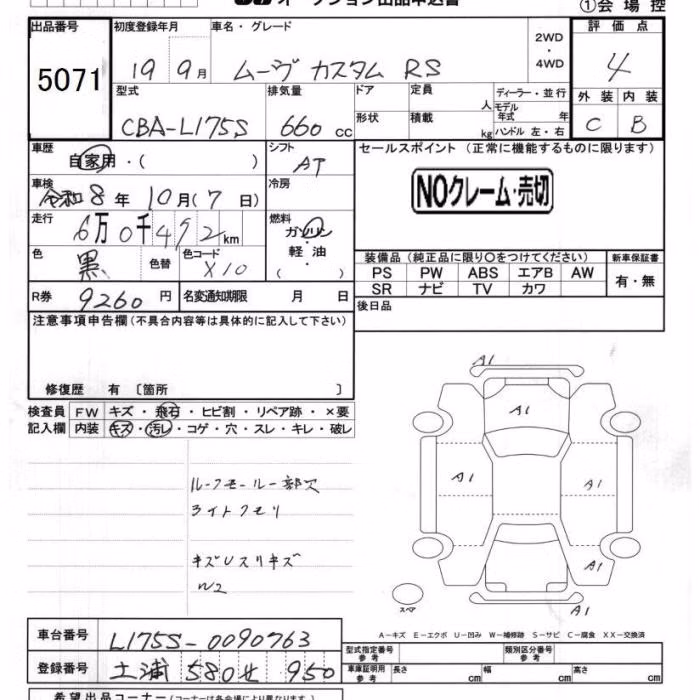 オークション出品申込書
①会場控
出品番号
5071
初度登録年月
車名・グレード
19 9月
ムーヴ カスタム RS
2WD
・
4WD
評価点
4
外装 内装
C B
型式
CBA-L175S
排気量
660 cc
ドア
形状
定員
人
積載
kg
ディーラー・並行
モデル
年式 年
ハンドル 左・右
車歴
自家用・( )
シフト
AT
セールスポイント (正常に機能するものに限ります)
NOクレーム・売切
車検
令和8年10月(7日)
冷房
走行
6万0千492km
燃料
ガソリン
軽油
( )
色
黒
色替
色コード
X10
装備品 (純正品に限り〇をつけてください)
新車保証書
PS PW ABS エアB AW
SR ナビ TV カワ
有・無
R券
9260円
名変通知期限 月 日
後日品
注意事項申告欄 (不具合内容等は具体的に記入して下さい)
修復歴 有 〔箇所 〕
検査員
記入欄
FW キズ・飛石・ヒビ割・リペア跡・×要
内装 キズ・汚レ・コゲ・穴・スレ・キレ・破レ
ルーフモール一部欠
ライトクモリ
キズUスリキズ
W2
A1
A1
A1
A1
A1
A1
スペア
A-キズ E-エクボ U-凹み W-補修跡 S-サビ C-腐食 XX-交換済
車台番号
L175S-0090763
登録番号
土浦 580 せ 950
型式指定番号
類別区分番号
車庫証明用
参考
長さ cm
幅 cm
高さ cm
希望出品コーナー (コーナーは各会場により異なります)